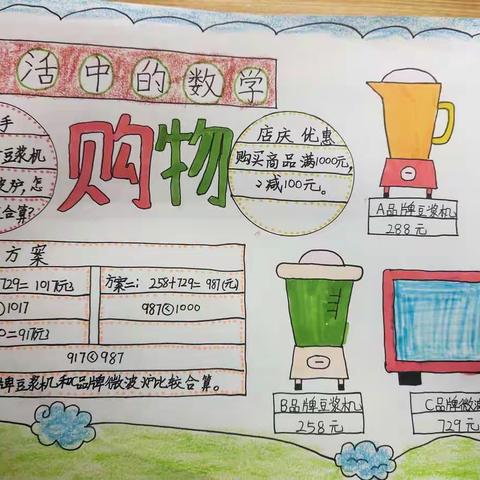 活中的数学
手
豆浆机
波炉，怎
合算？
购物
店庆 优惠
购买商品满1000元，
减100元。
A品牌豆浆机
288元
方案
729=1017(元)
1017
0=917(元)
方案二：258+729=987(元)
987<1000
917<987
牌豆浆机和C品牌微波炉比较合算。
B品牌豆浆机
258元
C品牌微波
729元